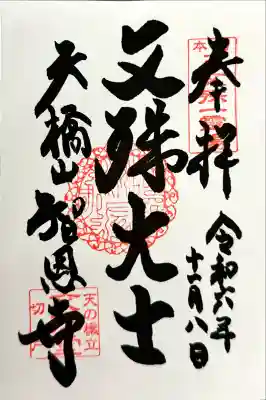 奉拝
令和六年
十一月八日
文殊大士
天橋山
智恩寺
天の橋立
切
本